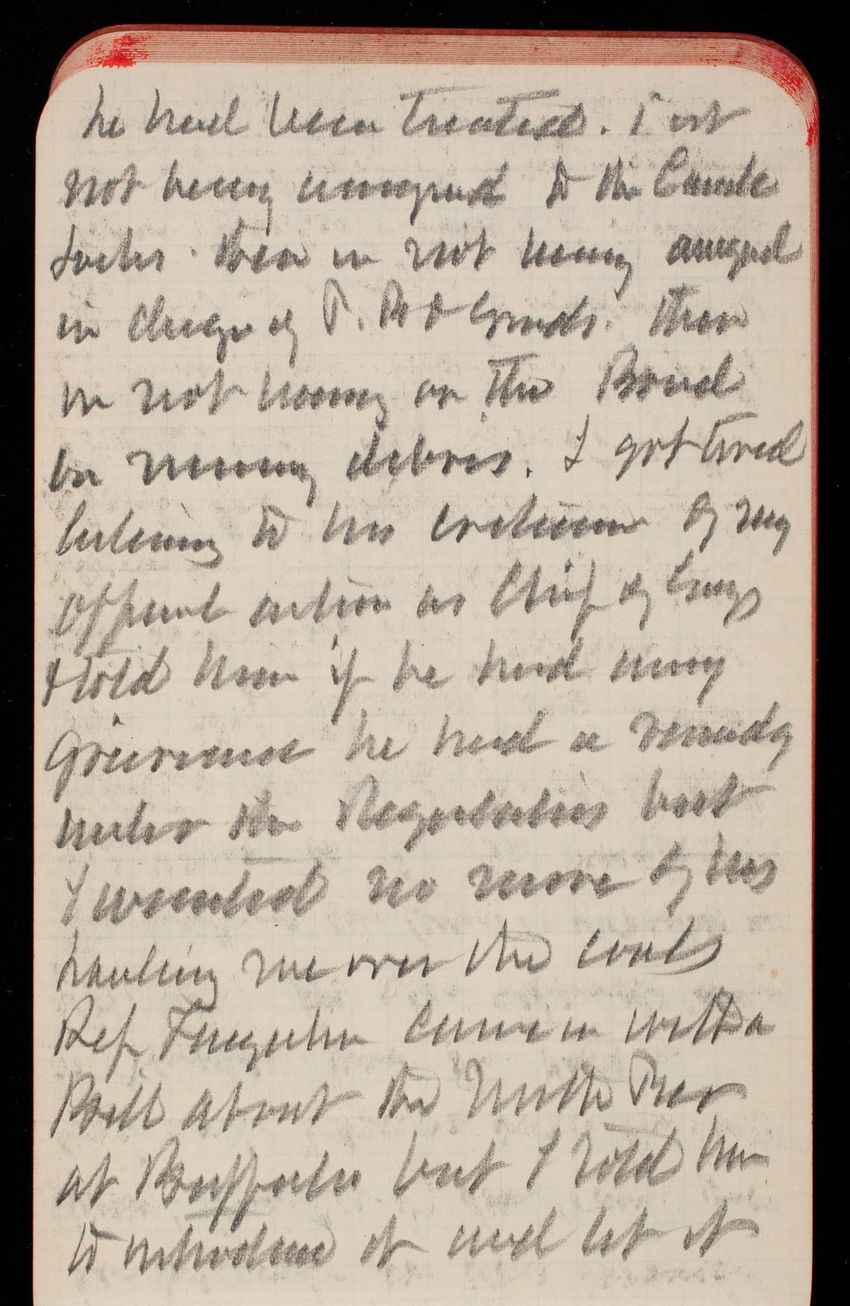 he had been treated. First
not being assigned to the Cascade
Locks. then in not being assigned
in charge of P. B & Grounds. then
in not being on the Board
on mining debris. I got tired
listening to his criticism of my
official action as Chief of Engrs
& told him if he had any
Grievance he had a remedy
under the Regulations but
I wanted no more of his
hauling me over the coals
Rep Farquhar came in with a
Bill about the North Pier
at Buffalo but I told him
to introduce it and let it